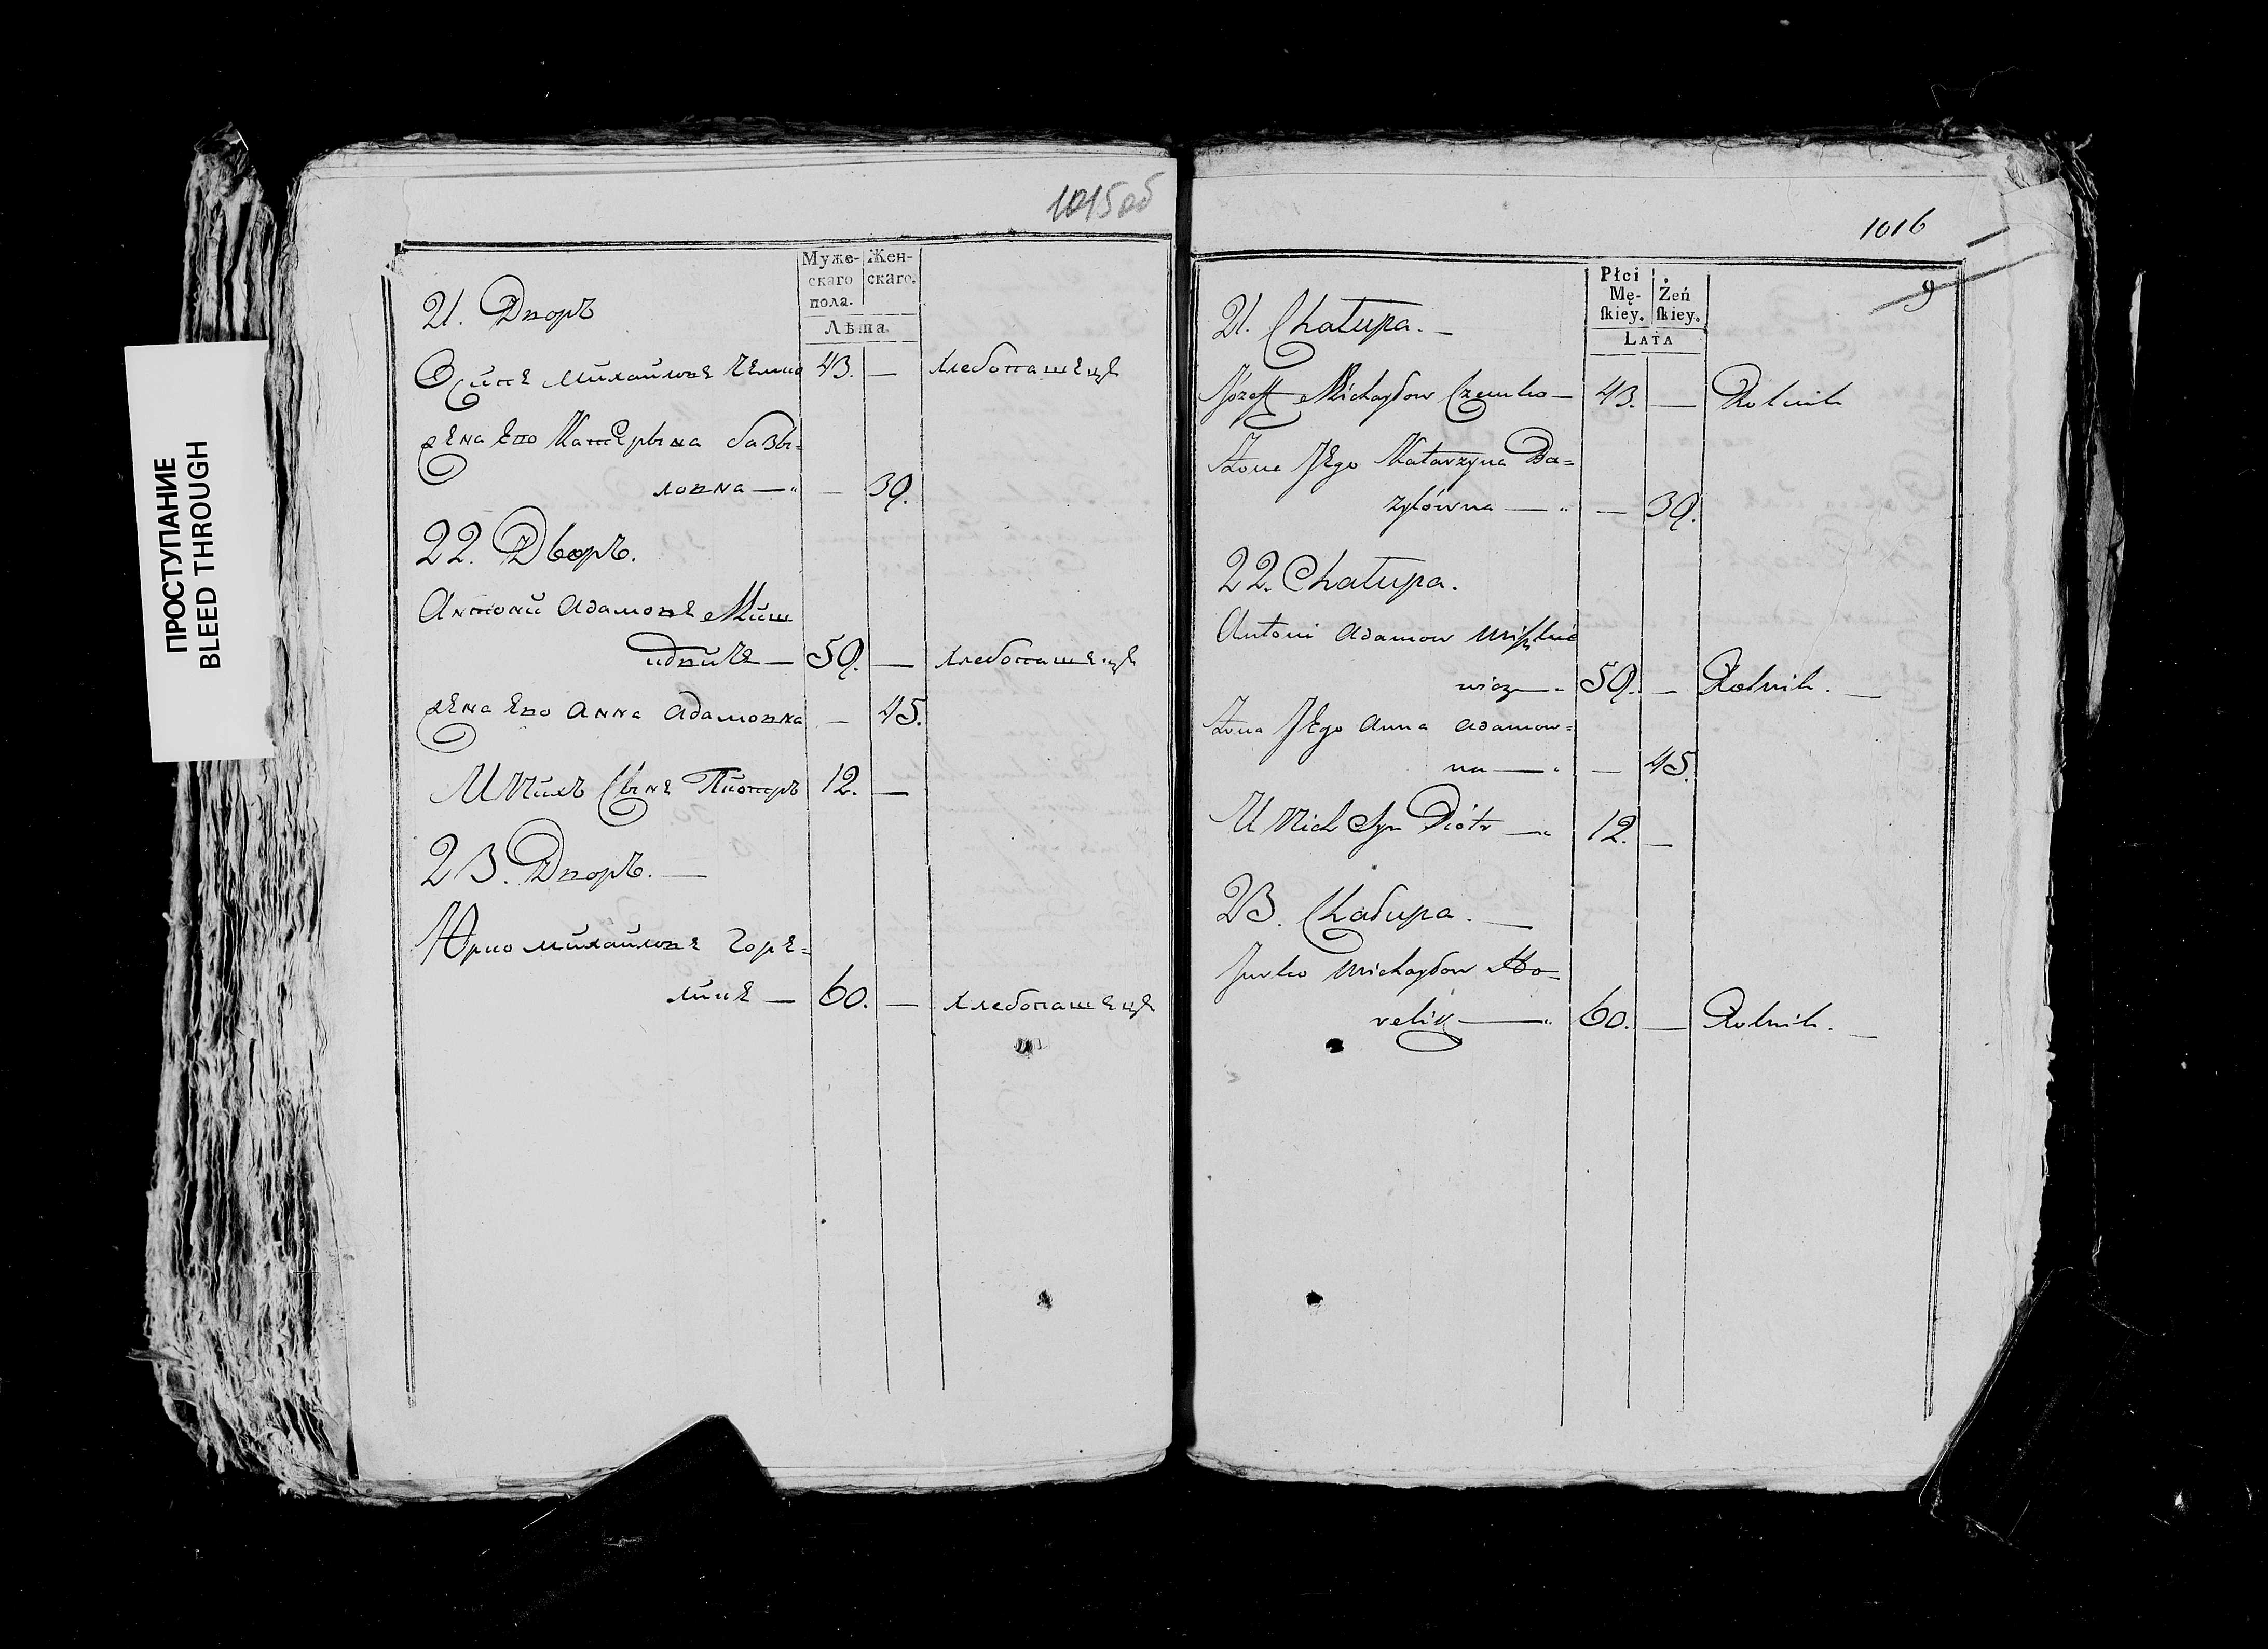 ПРОСТУПАНИЕ
BLEED THROUGH
1015 об
Муже- Жен-
скаго скаго.
пола.
Лѣта
21. Дворъ
Михайловъ 43. — хлебопашецъ
жена Ево Катерына базы=
ловна — — 39.
22. Дворъ.
Антони Адамовъ Миш
— 59. — хлебопашецъ
жена Ево Анна Адамовна — 45.
У Нихъ Сынъ Пиотръ 12. —
23. Дворъ. —
Юрко Михайловъ Горе=
ликъ — 60. — хлебопашецъ
1016
9
Płci
Mę- Żeń
skiey. skiey.
LATA
21. Chałupa. —
Józeff Michayłow Czemko — 43. — Rolnik
Żona Jego Katarzyna Ba=
zylówna — — 39.
22. Chałupa.
Antoni Adamow
wicz — 59. — Rolnik. —
Żona Jego Anna Adamow=
na — — 45.
U Nich Syn Piótr — 12. —
23. Chałupa. —
Jurko Michayłow Ho=
relik — 60. — Rolnik. —